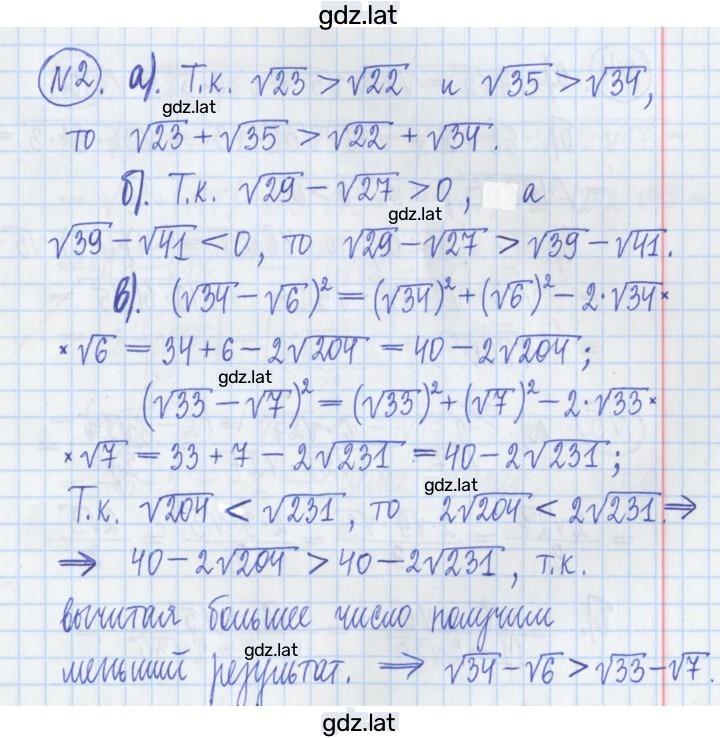 gdz.lat
№2. а). Т.к. √23 > √22 и √35 > √34,
gdz.lat
то √23 + √35 > √22 + √34.
б). Т.к. √29 − √27 > 0, а
gdz.lat
√39 − √41 < 0, то √29 − √27 > √39 − √41.
в). (√34 − √6)² = (√34)² + (√6)² − 2·√34 ×
× √6 = 34 + 6 − 2√204 = 40 − 2√204;
gdz.lat
(√33 − √7)² = (√33)² + (√7)² − 2·√33 ×
× √7 = 33 + 7 − 2√231 = 40 − 2√231;
gdz.lat
Т.к. √204 < √231, то 2√204 < 2√231. ⇒
⇒ 40 − 2√204 > 40 − 2√231, т.к.
вычитая большее число получим
gdz.lat
меньший результат. ⇒ √34 − √6 > √33 − √7.
gdz.lat